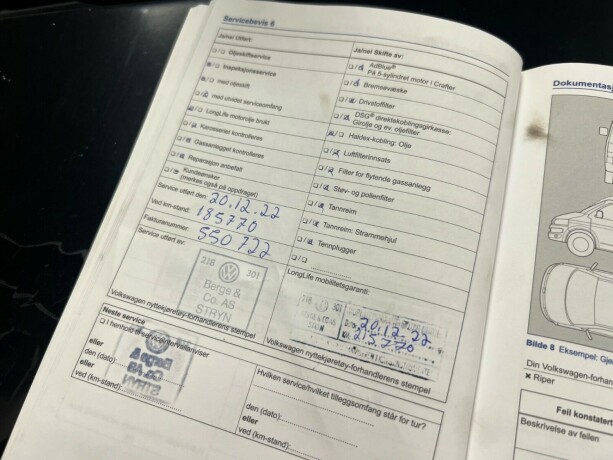 Servicebevis 6
Ja/nei Utført:
Oljeskiftservice
Inspeksjonsservice
med oljeskift
med utvidet serviceomfang
LongLife motorolje brukt
Karosseriet kontrolleres
Gassanlegget kontrolleres
Reparasjon anbefalt
Kundeønsker
(merkes også på oppdraget)
Service utført den: 20.12.22
Ved km-stand: 185770
Fakturanummer: 550 722
Service utført av:
218 301
Berge &
Co. AS
STRYN
Volkswagen nyttekjøretøy-forhandlerens stempel
Ja/nei Skifte av:
AdBlue®
På 5-sylindret motor i Crafter
Bremsevæske
Drivstoffilter
DSG® direktekoblingsgirkasse:
Girolje og ev. oljefilter
Haldex-kobling: Olje
Luftfilterinnsats
Filter for flytende gassanlegg
Støv- og pollenfilter
Tannreim
Tannreim: Strammehjul
Tennplugger
LongLife mobilitetsgaranti:
218 301
STRYN
20.12.24
215.770
Volkswagen nyttekjøretøy-forhandlerens stempel
Neste service
I henhold til serviceintervallviser
eller
den (dato):
eller
ved (km-stand):
Berge &
Co. AS
STRYN
Hvilken service/hvilket tilleggsomfang står for tur?
den (dato):
eller
ved (km-stand):
Dokumentasj
Bilde 8 Eksempel: Gje
Din Volkswagen-forhan
× Riper
Feil konstatert
Beskrivelse av feilen